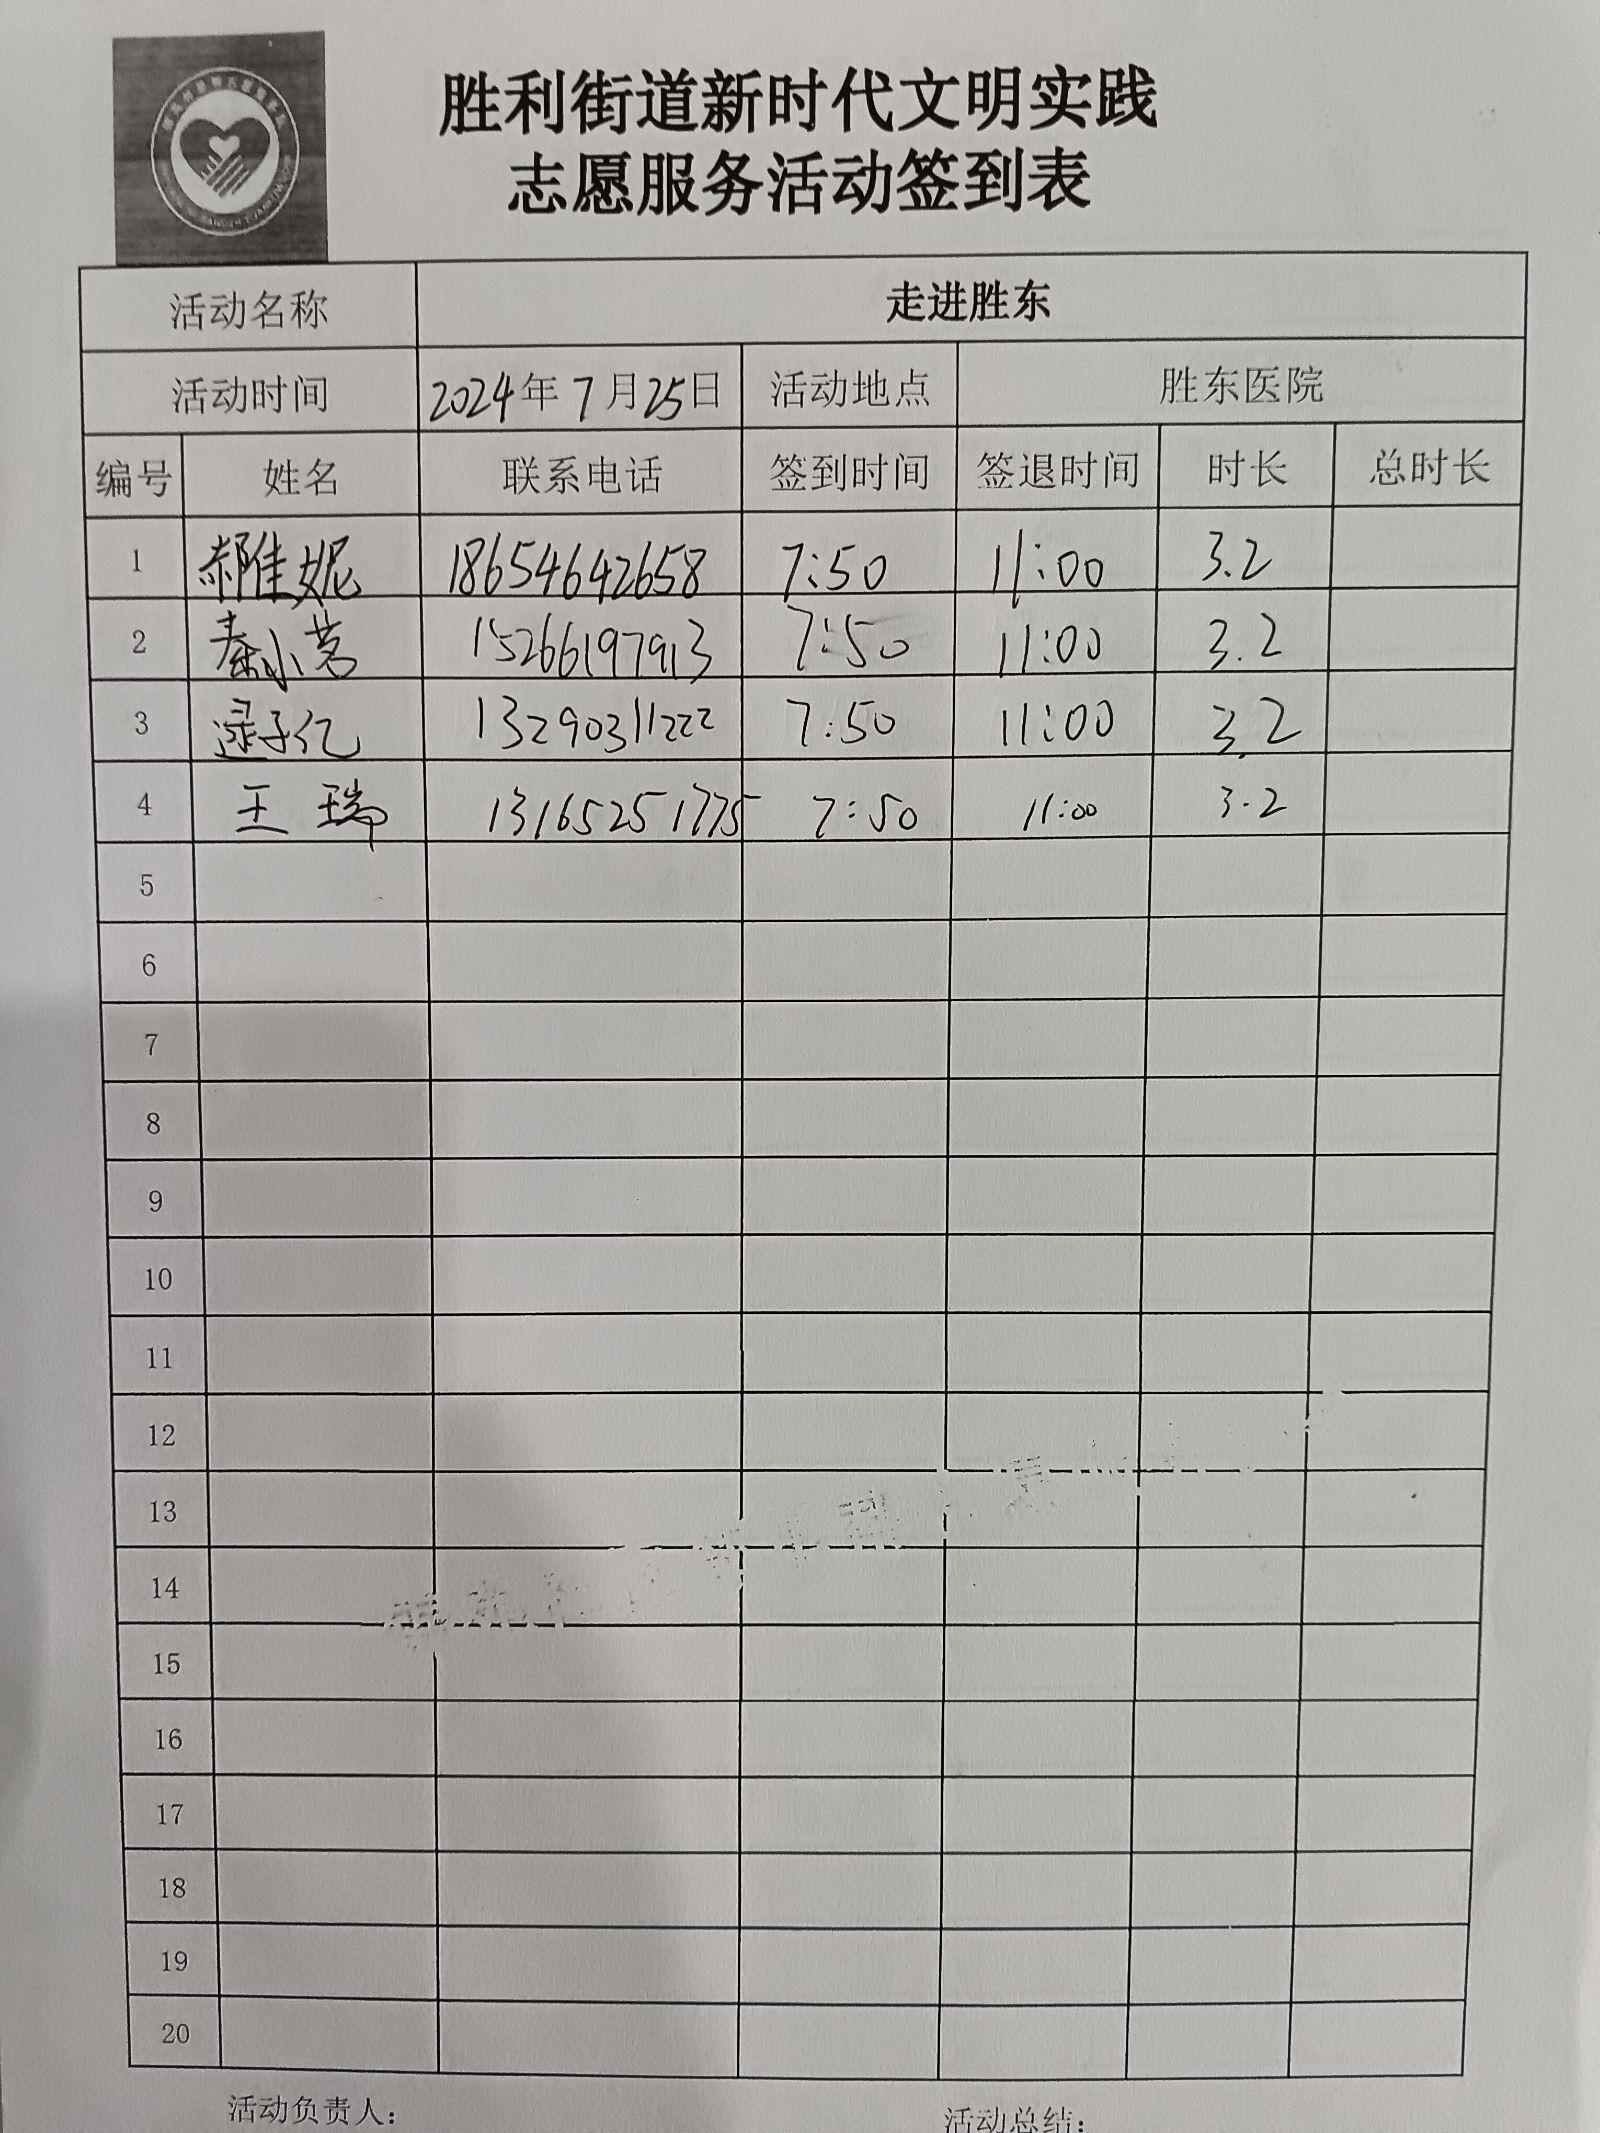 胜利街道新时代文明实践
志愿服务活动签到表
活动名称 走进胜东
活动时间 2024年7月25日 活动地点 胜东医院
编号 姓名 联系电话 签到时间 签退时间 时长 总时长
1 郝佳妮 18654642658 7:50 11:00 3.2
2 秦小茗 15266197913 7:50 11:00 3.2
3 逯子亿 13290311222 7:50 11:00 3.2
4 王瑞 13165251775 7:50 11:00 3.2
5
6
7
8
9
10
11
12
13
14
15
16
17
18
19
20
活动负责人： 活动总结：